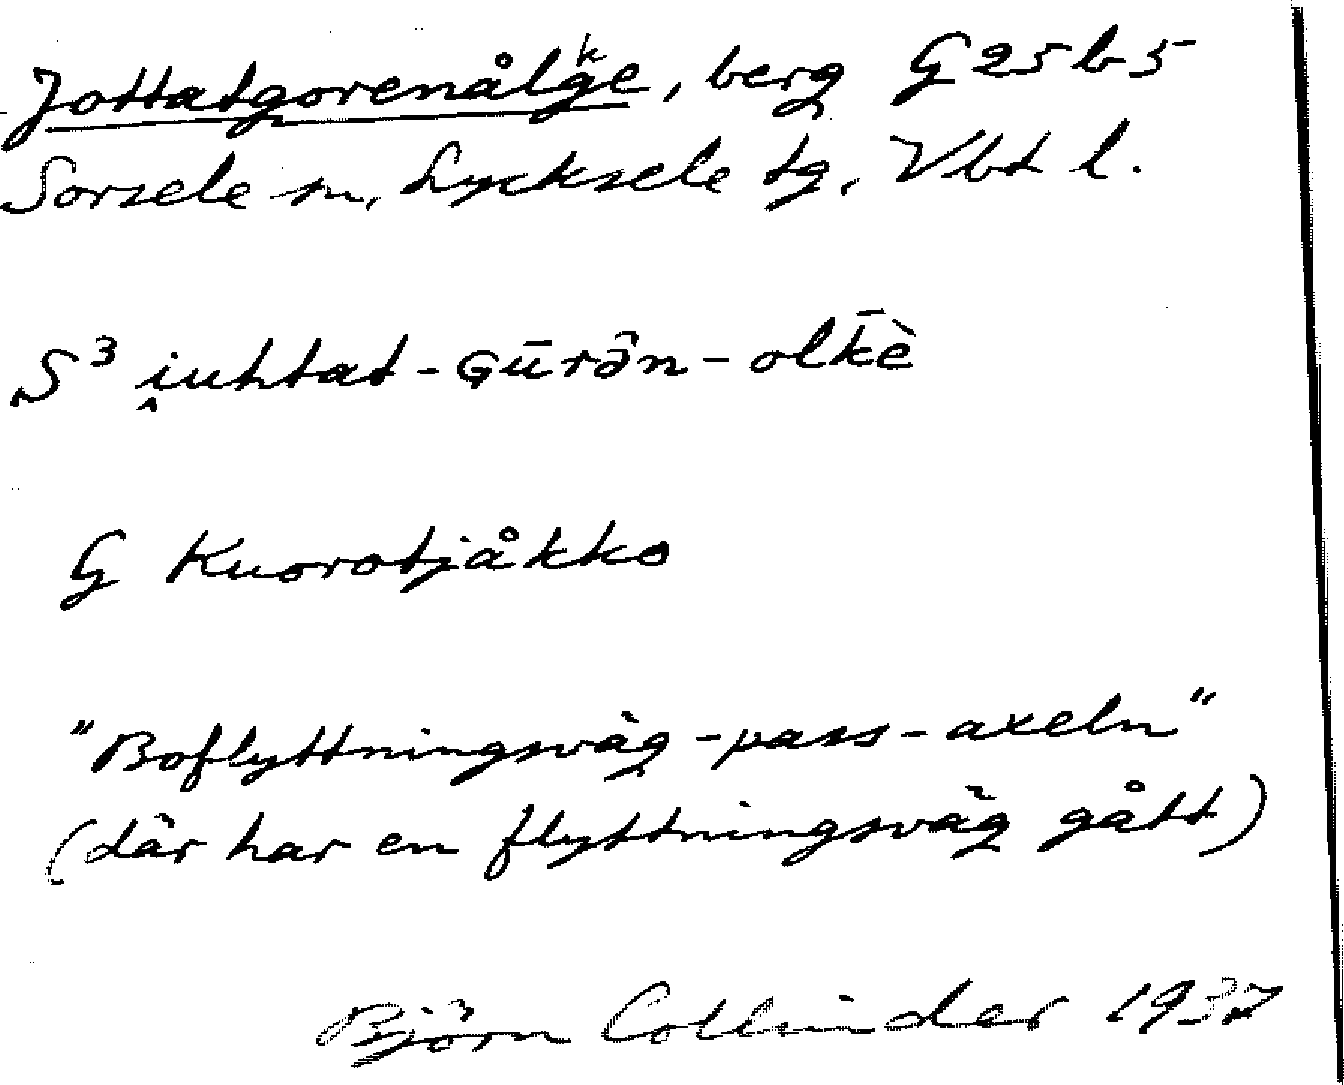 Jottatgorenålᵏge, berg G25b5
Sorsele sn, Lycksele tg, Vbt l.
S³ i̭uhtat-Gūrə̑n-olk̄è
G Kuorotjåkko
"Boflyttningsväg-pass-axeln"
(där har en flyttningsväg gått)
Björn Collinder 1937